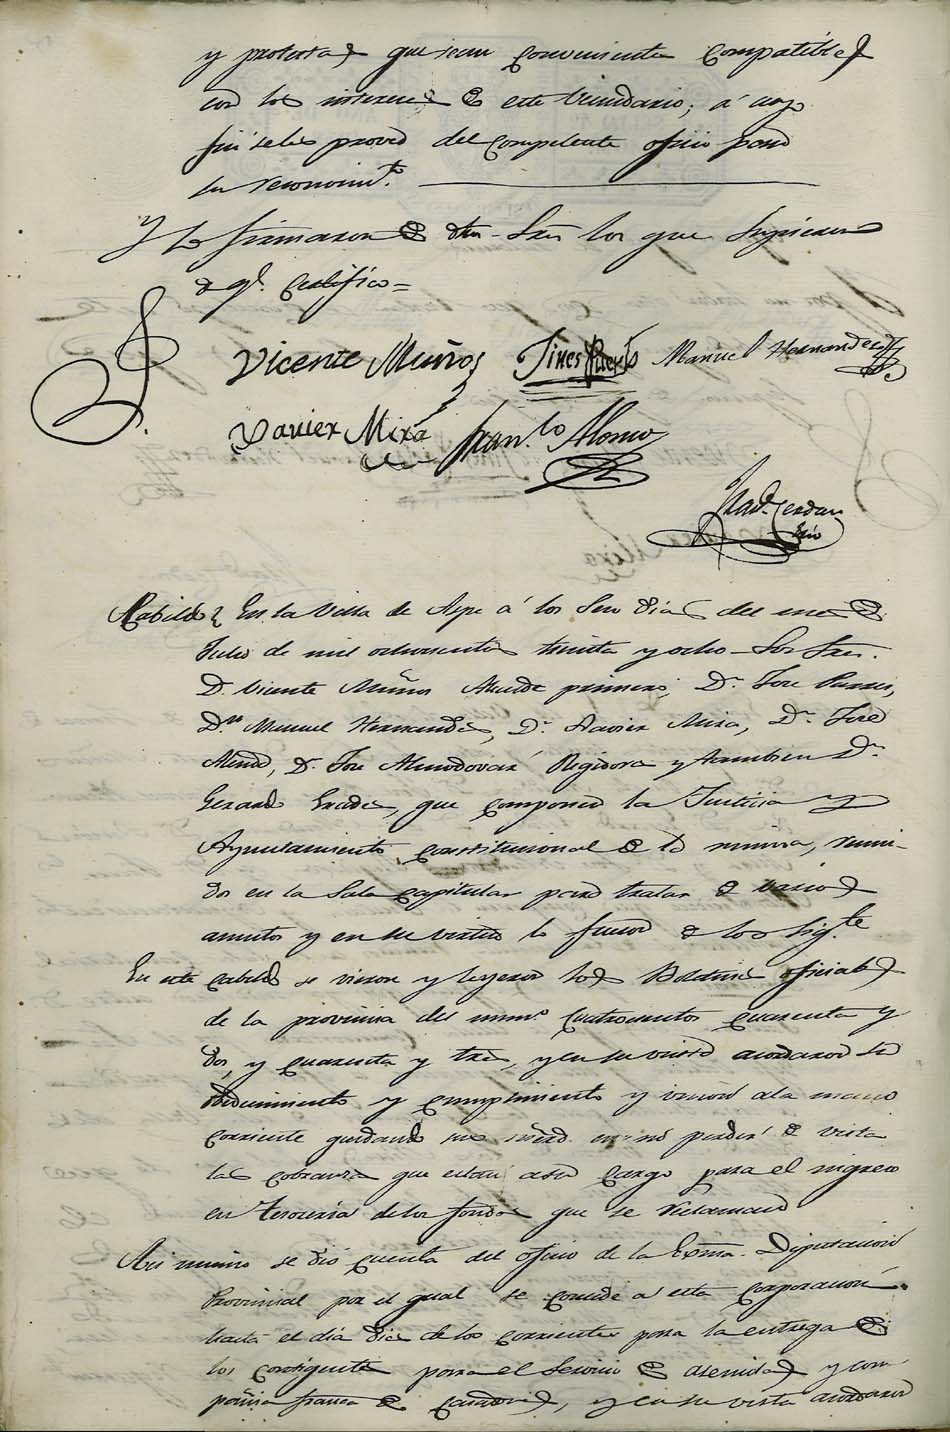 y protestas que sean convenientes compatibles
con los intereses de este Vecindario; á cuyo
fin se les proveo del competente oficio para
su reconocimto.
Y lo firmaron de dhos Sres los que supieron
de ql. Certifico =
Vicente Muños Jines Puerto Manuel Hernandez
Xavier Mira Fran.co Alonso
Fran.co Cerdan
Srio
Cabildo En la Villa de Aspe á los Seis dias del mes de
Julio de mil ochocientos treinta y ocho Los Sres.
D. Vicente Muños Alcalde primero, Dn. Jose
Dn. Manuel Hernandes, Dn. Xavier Mira, Dn. Jose
D. Jose Almodovar Regidores y tambien Dn.
Gerardo que componen la Justicia y
Ayuntamiento constitucional de la misma, reuni-
dos en la Sala capitular para tratar de varios
asuntos y en su virtud lo fueron de los Sigtes
En este cabildo se vieron y leyeron los Boletines oficiales
de la provincia del numo. Cuatrocientos cuarenta y
dos, y cuarenta y tres, y en su vista acordaron su
obedecimiento y cumplimiento y a la mano
corriente no perder de vista
las cobranzas que estan a su cargo para el ingreso
en tesoreria de los fondos que se reclaman
Asi mismo se dió cuenta del oficio de la Exma. Diputacion
Provincial por el qual se concede a esta corporacion
hasta el dia dies de los corrientes para la entrega de
los para el Servicio de y com-
pañia franca de cazadores, y en su vista acordaron